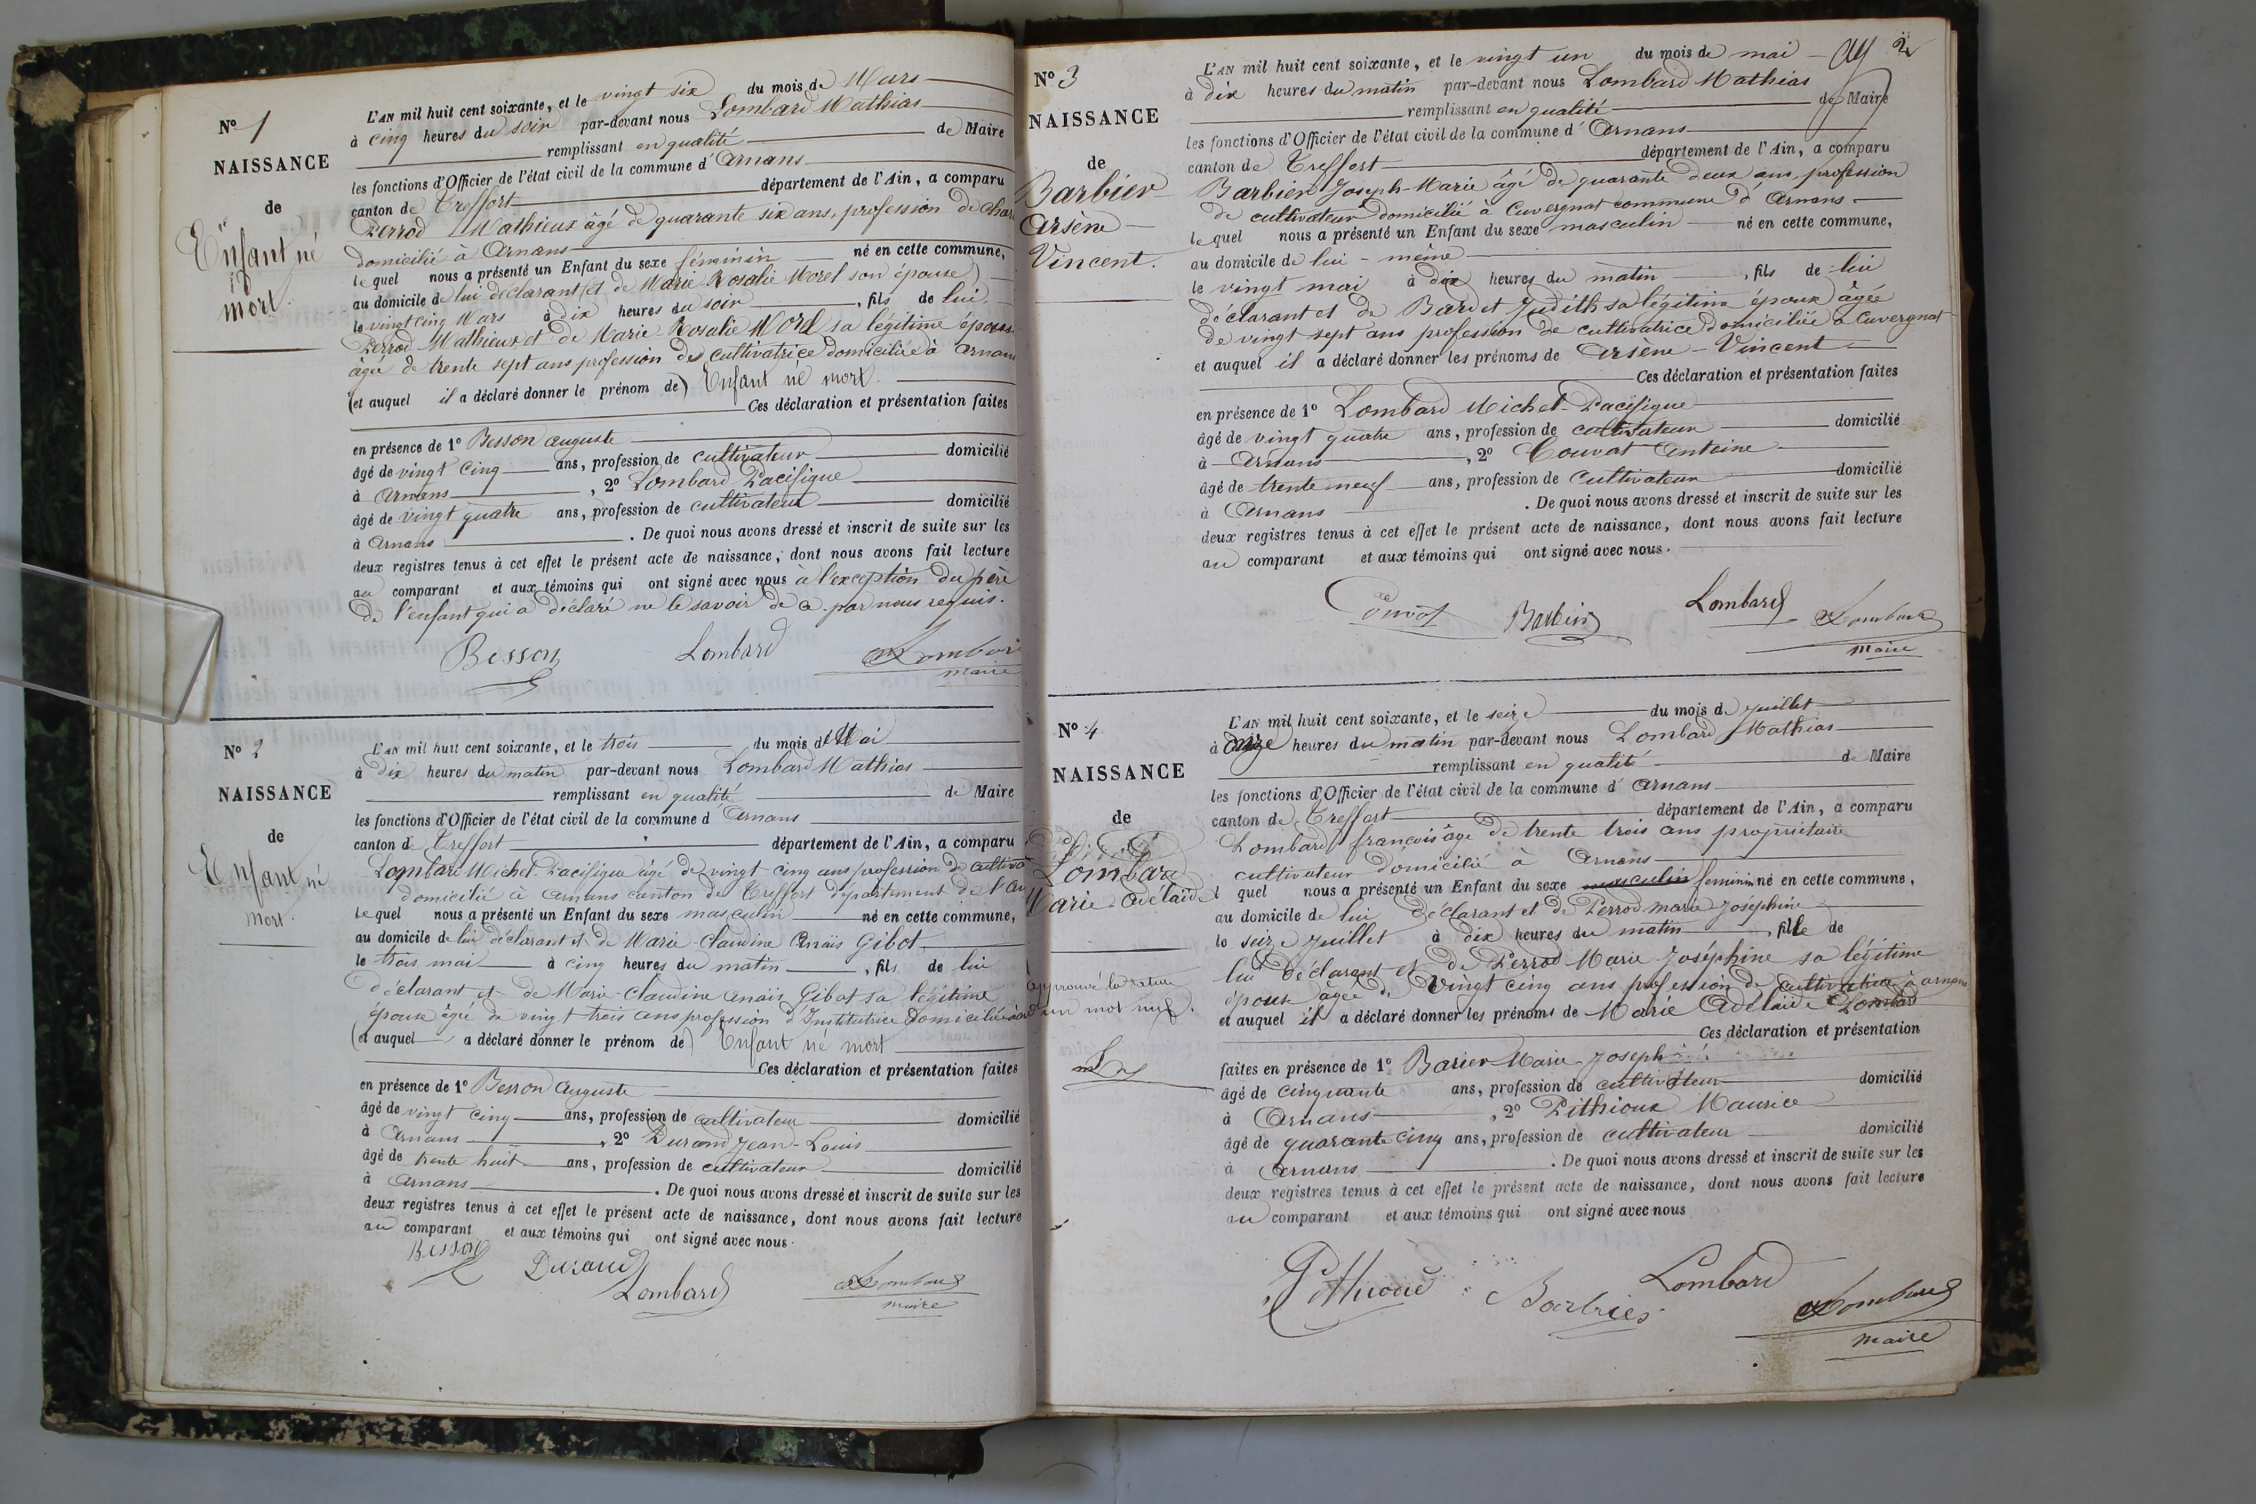 Nº 1
NAISSANCE
de
Enfant né
mort.
L'AN mil huit cent soixante, et le vingt six du mois de Mars
à cinq heures du soir par-devant nous Lombard Mathias
remplissant en qualité de Maire
les fonctions d'Officier de l'état civil de la commune d'Arnans
canton de Treffort département de l'Ain, a comparu
Perrod Mathieux âgé de quarante six ans, profession de
domicilié à Arnans
lequel nous a présenté un Enfant du sexe féminin né en cette commune,
au domicile de lui déclarant (et de Marie Rosalie Morel son épouse)
le vingt cinq Mars à dix heures du soir, fils de lui
Perrod Mathieux et de Marie Rosalie Morel sa légitime épouse
âgée de trente sept ans profession de cultivatrice domiciliée à Arnans
(et auquel il a déclaré donner le prénom de) Enfant né mort.
Ces déclaration et présentation faites
en présence de 1º Besson auguste
âgé de vingt cinq ans, profession de cultivateur domicilié
à Arnans, 2º Lombard Pacifique
âgé de vingt quatre ans, profession de cultivateur domicilié
à Arnans. De quoi nous avons dressé et inscrit de suite sur les
deux registres tenus à cet effet le présent acte de naissance, dont nous avons fait lecture
au comparant et aux témoins qui ont signé avec nous à l'exception du père
de l'enfant qui a déclaré ne le savoir de ce par nous requis.
Besson Lombard Lombard
maire
Nº 2
NAISSANCE
de
Enfant né
mort.
L'AN mil huit cent soixante, et le trois du mois de Mai
à dix heures du matin par-devant nous Lombard Mathias
remplissant en qualité de Maire
les fonctions d'Officier de l'état civil de la commune d'Arnans
canton de Treffort département de l'Ain, a comparu
Lombard Michel Pacifique âgé de vingt cinq ans profession de cultiva
domicilié à Arnans canton de Treffort département de l'Ain
lequel nous a présenté un Enfant du sexe masculin né en cette commune,
au domicile de lui déclarant et de Marie Claudine Anaïs Gibot
le trois mai à cinq heures du matin, fils de lui
déclarant et de Marie-Claudine Anaïs Gibot sa légitime
épouse âgée de vingt trois ans profession d'Institutrice domiciliée à
(et auquel a déclaré donner le prénom de) Enfant né mort
Ces déclaration et présentation faites
en présence de 1º Besson Auguste
âgé de vingt cinq ans, profession de cultivateur domicilié
à Arnans, 2º Durand Jean-Louis
âgé de trente huit ans, profession de cultivateur domicilié
à Arnans. De quoi nous avons dressé et inscrit de suite sur les
deux registres tenus à cet effet le présent acte de naissance, dont nous avons fait lecture
au comparant et aux témoins qui ont signé avec nous.
Besson Durand Lombard Lombard
maire
2
Nº 3
NAISSANCE
de
Barbier
Arsène
Vincent.
L'AN mil huit cent soixante, et le vingt un du mois de mai
à dix heures du matin par-devant nous Lombard Mathias
remplissant en qualité de Maire
les fonctions d'Officier de l'état civil de la commune d'Arnans
canton de Treffort département de l'Ain, a comparu
Barbier Joseph-Marie âgé de quarante deux ans, profession
de cultivateur domicilié à Cuvergnat commune d'Arnans
lequel nous a présenté un Enfant du sexe masculin né en cette commune,
au domicile de lui-même
le vingt mai à dix heures du matin, fils de lui
déclarant et de Bardet Judith sa légitime épouse âgée
de vingt sept ans profession de cultivatrice domiciliée à Cuvergnat
et auquel il a déclaré donner les prénoms de Arsène-Vincent
Ces déclaration et présentation faites
en présence de 1º Lombard Michel-Pacifique
âgé de vingt quatre ans, profession de cultivateur domicilié
à Arnans, 2º Couvat Antoine
âgé de trente neuf ans, profession de cultivateur domicilié
à Arnans. De quoi nous avons dressé et inscrit de suite sur les
deux registres tenus à cet effet le présent acte de naissance, dont nous avons fait lecture
au comparant et aux témoins qui ont signé avec nous.
Couvat Barbier Lombard Lombard
Maire
Nº 4
NAISSANCE
de
Lombard
Marie Adélaïde
approuvé la rature
d'un mot nul.
L'AN mil huit cent soixante, et le seize du mois de juillet
à onze heures du matin par-devant nous Lombard Mathias
remplissant en qualité de Maire
les fonctions d'Officier de l'état civil de la commune d'Arnans
canton de Treffort département de l'Ain, a comparu
Lombard françois âgé de trente trois ans propriétaire
cultivateur domicilié à Arnans
lequel nous a présenté un Enfant du sexe masculin feminin né en cette commune,
au domicile de lui déclarant et de Perrod marie Joséphine
le seize juillet à dix heures du matin, fille de
lui déclarant et de Perrod Marie Joséphine sa légitime
épouse âgée de vingt cinq ans profession de cultivatrice à arnans
et auquel il a déclaré donner les prénoms de Marie Adélaïde Lombard
Ces déclaration et présentation
faites en présence de 1º Barier Marie Joseph
âgé de cinquante ans, profession de cultivateur domicilié
à Arnans, 2º Pithioux Maurice
âgé de quarante cinq ans, profession de cultivateur domicilié
à Arnans. De quoi nous avons dressé et inscrit de suite sur les
deux registres tenus à cet effet le présent acte de naissance, dont nous avons fait lecture
au comparant et aux témoins qui ont signé avec nous
Pithioud Barbier Lombard Lombard
maire